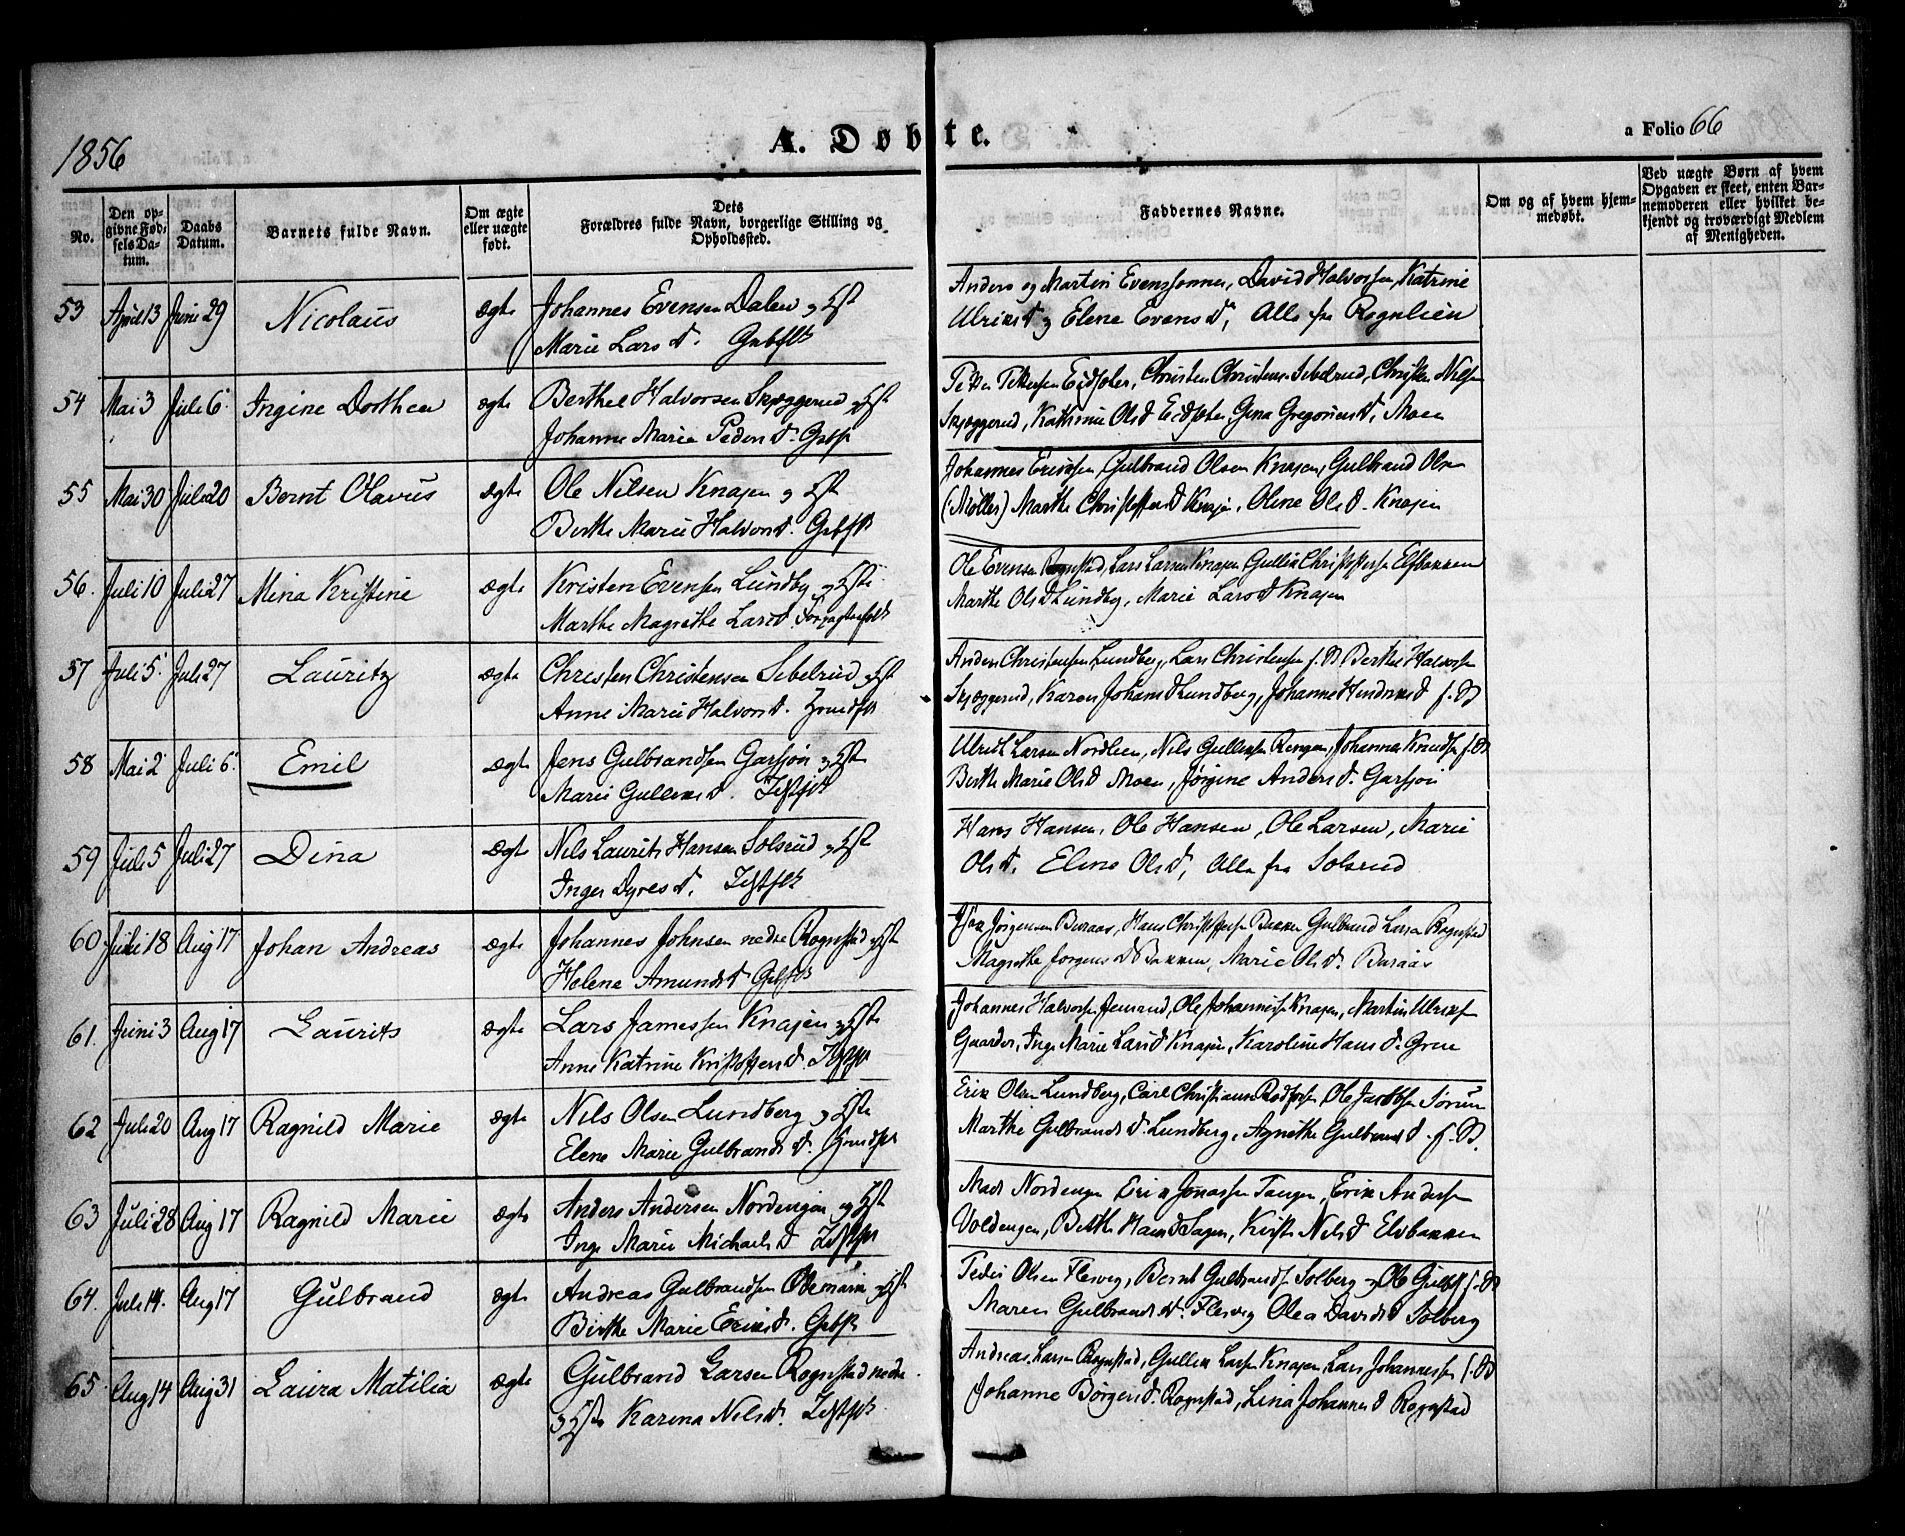 1856
A. Døbte.
a Folio 66
No.
Den op-
givne Fød-
sels Da-
tum.
Daabs
Datum.
Barnets fulde Navn.
Om ægte
eller uægte
født.
Dets
Forældres fulde Navn, borgerlige Stilling og
Opholdssted.
Faddernes Navne.
Om og af hvem hjem-
medøbt.
Ved uægte Børn af hvem
Opgaven er skeet, enten Bar-
nemoderen eller hvilket be-
kjendt og troværdigt Medlem
af Menigheden.
53 April 13 Juni 29 Nicolaus ægte Johannes Evensen Dalen og Hst
Marie Lars D. Grbflk
Anders og Martin Evenssønner, David Halvorsen, Katrine
Ulriks D og Elene Evens D, Alle fra Rognlien
54 Mai 3 Juli 6 Ingine Dorthea ægte Berthel Halvorsen Skjæggerud og Hst
Johanne Marie Peders D. Grbf
Petter Pettersen Eidsfoter, Christen Christens. Sebelrud, Christen Nilsen
Skjæggerud, Kathrine Ols D Eidsfoter, Gina Gregorius D, Moen
55 Mai 30 Juli 20 Bernt Olavus ægte Ole Nilsen Knajen og Hst
Berthe Marie Halvors D. Grbflk
Johannes Eriksen, Gulbrand Olsen Knajen, Gulbrand Olsen
(Møller) Marthe Christoffers D Knajen, Oline Ols D. Knajen
56. Juli 10 Juli 27 Mina Kristine ægte Kristen Evensen Lundby og Hst
Marthe Magrethe Lars D. Forpagterfolk
Ole Evensen Rognstad, Lars Larsen Knajen Gullik Christoffersen Elfbakken
Marthe Ols D Lundby, Marie Lars D Knajen
57 Juli 5 Juli 27 Lauritz ægte Christen Christensen Sebelrud og Hst
Anne Marie Halvors D.
Anders Christensen Lundberg, Lars Christensen f. St Berthel Halvorsen
Skjæggerud, Karen Johans D Lundberg, Johanne Hendriks D f. St
58 Mai 2 Juli 6 Emil ægte Jens Gulbrandsen Garsjøn og Hst
Marie Gulliks D.
Ulrich Larsen Nordlien, Nils Gulliksen Rengen, Johannes Knudsen f. St
Berthe Marie Ols D Moen, Jørgine Anders D. Garsjøn
59 Juli 5 Juli 27 Dina ægte Nils Laurits Hansen Solsrud og Hst
Inger Dyres D.
Hans Hansen, Ole Hansen, Ole Larsen, Marie
Ols D. Elene Ols D, Alle fra Solsrud
60 Juli 18 Aug 17 Johan Andreas ægte Johannes Johnsen nedre Rognstad og Hst
Helene Amunds D Grbflk
Jørgensen Buraas, Hans Christoffersen Bakken Gulbrand Larsen Rognstad
Magrethe Jørgens D Bakken, Marie Ols D. Buraas
61. Juni 3 Aug 17 Laurits ægte Lars Jamessen Knajen og Hste
Anne Katrine Kristoffers D.
Johannes Halvorsen Jensrud, Ole Johannesen Knajen, Martin Ulriksen
Gaarder, Inge Marie Lars D Knajen, Karoline Hans D. Gren
62 Juli 20 Aug 17 Ragnild Marie ægte Nils Olsen Lundberg og Hste
Elene Marie Gulbrands D.
Erik Olsen Lundberg, Carl Christiansen Rodfos, Ole Jacobsen Sørum
Marthe Gulbrands D. Lundberg, Agnethe Gulbrands D. f. St
63 Juli 28 Aug 17 Ragnild Marie ægte Anders Andersen Nordengen og Hst
Inge Marie Michaels D
Mads Nordengen Erik Jonassen Tangen, Erik Andersen
Voldengen, Berthe Hans D Hagen, Kirsti Nils D Elvbakken
64. Juli 14. Aug 17 Gulbrand ægte Andreas Gulbrandsen og Hst
Birthe Marie Eriks D. Grbflk
Peder Olsen Flesvig, Bernt Gulbrands. Solberg og Ole Gulbr. f. St
Maren Gulbrands D. Flesvig Olea Davids D Solberg
65. Aug 14 Aug 31 Laura Matilia ægte Gulbrand Larsen Rognstad nedre
og Hste Karina Nils D.
Andreas Larsen Rognstad, Gullik Larsen Knajen, Lars Johannessen f. St
Johanne Børgers D. Rognstad, Lina Johannes D Rognstad